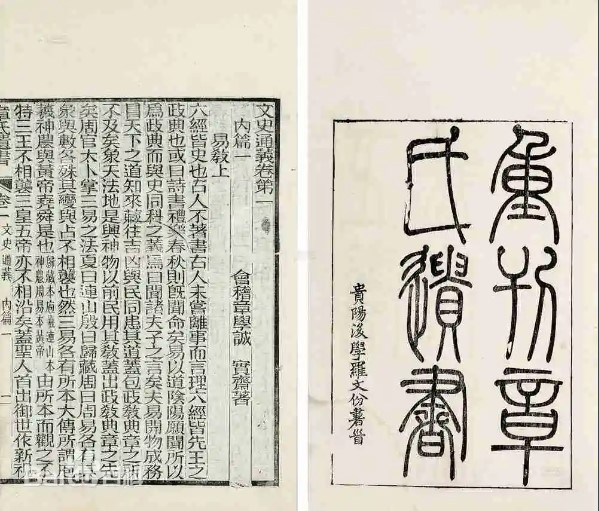 重刊章
氏遺書
貴陽後學羅文份署
文史通義卷第一
內篇一 會稽章學誠 實齋著
易教上
六經皆史也古人不著書古人未嘗離事而言理六經皆先王之
政典也或曰詩書禮樂春秋則旣聞命矣易以道陰陽願聞所以
爲政典而與史同科之義焉曰聞諸夫子之言矣夫易開物成務
冒天下之道知來藏往吉凶與民同患其道蓋包政教典章之所
不及矣象天法地是興神物以前民用其教蓋出政教典章之先
矣周官太卜掌三易之法夏曰連山殷曰歸藏周曰周易各有其
象與數各殊其變與占不相襲也然三易各有所本大傳所謂庖
羲神農與黃帝堯舜是也歸藏本庖羲連山本神農周易本黃帝由所本而觀之不
特三王不相襲三皇五帝亦不相沿矣蓋聖人首出御世作新視
章氏遺書 卷一 文史通義 內篇一 一